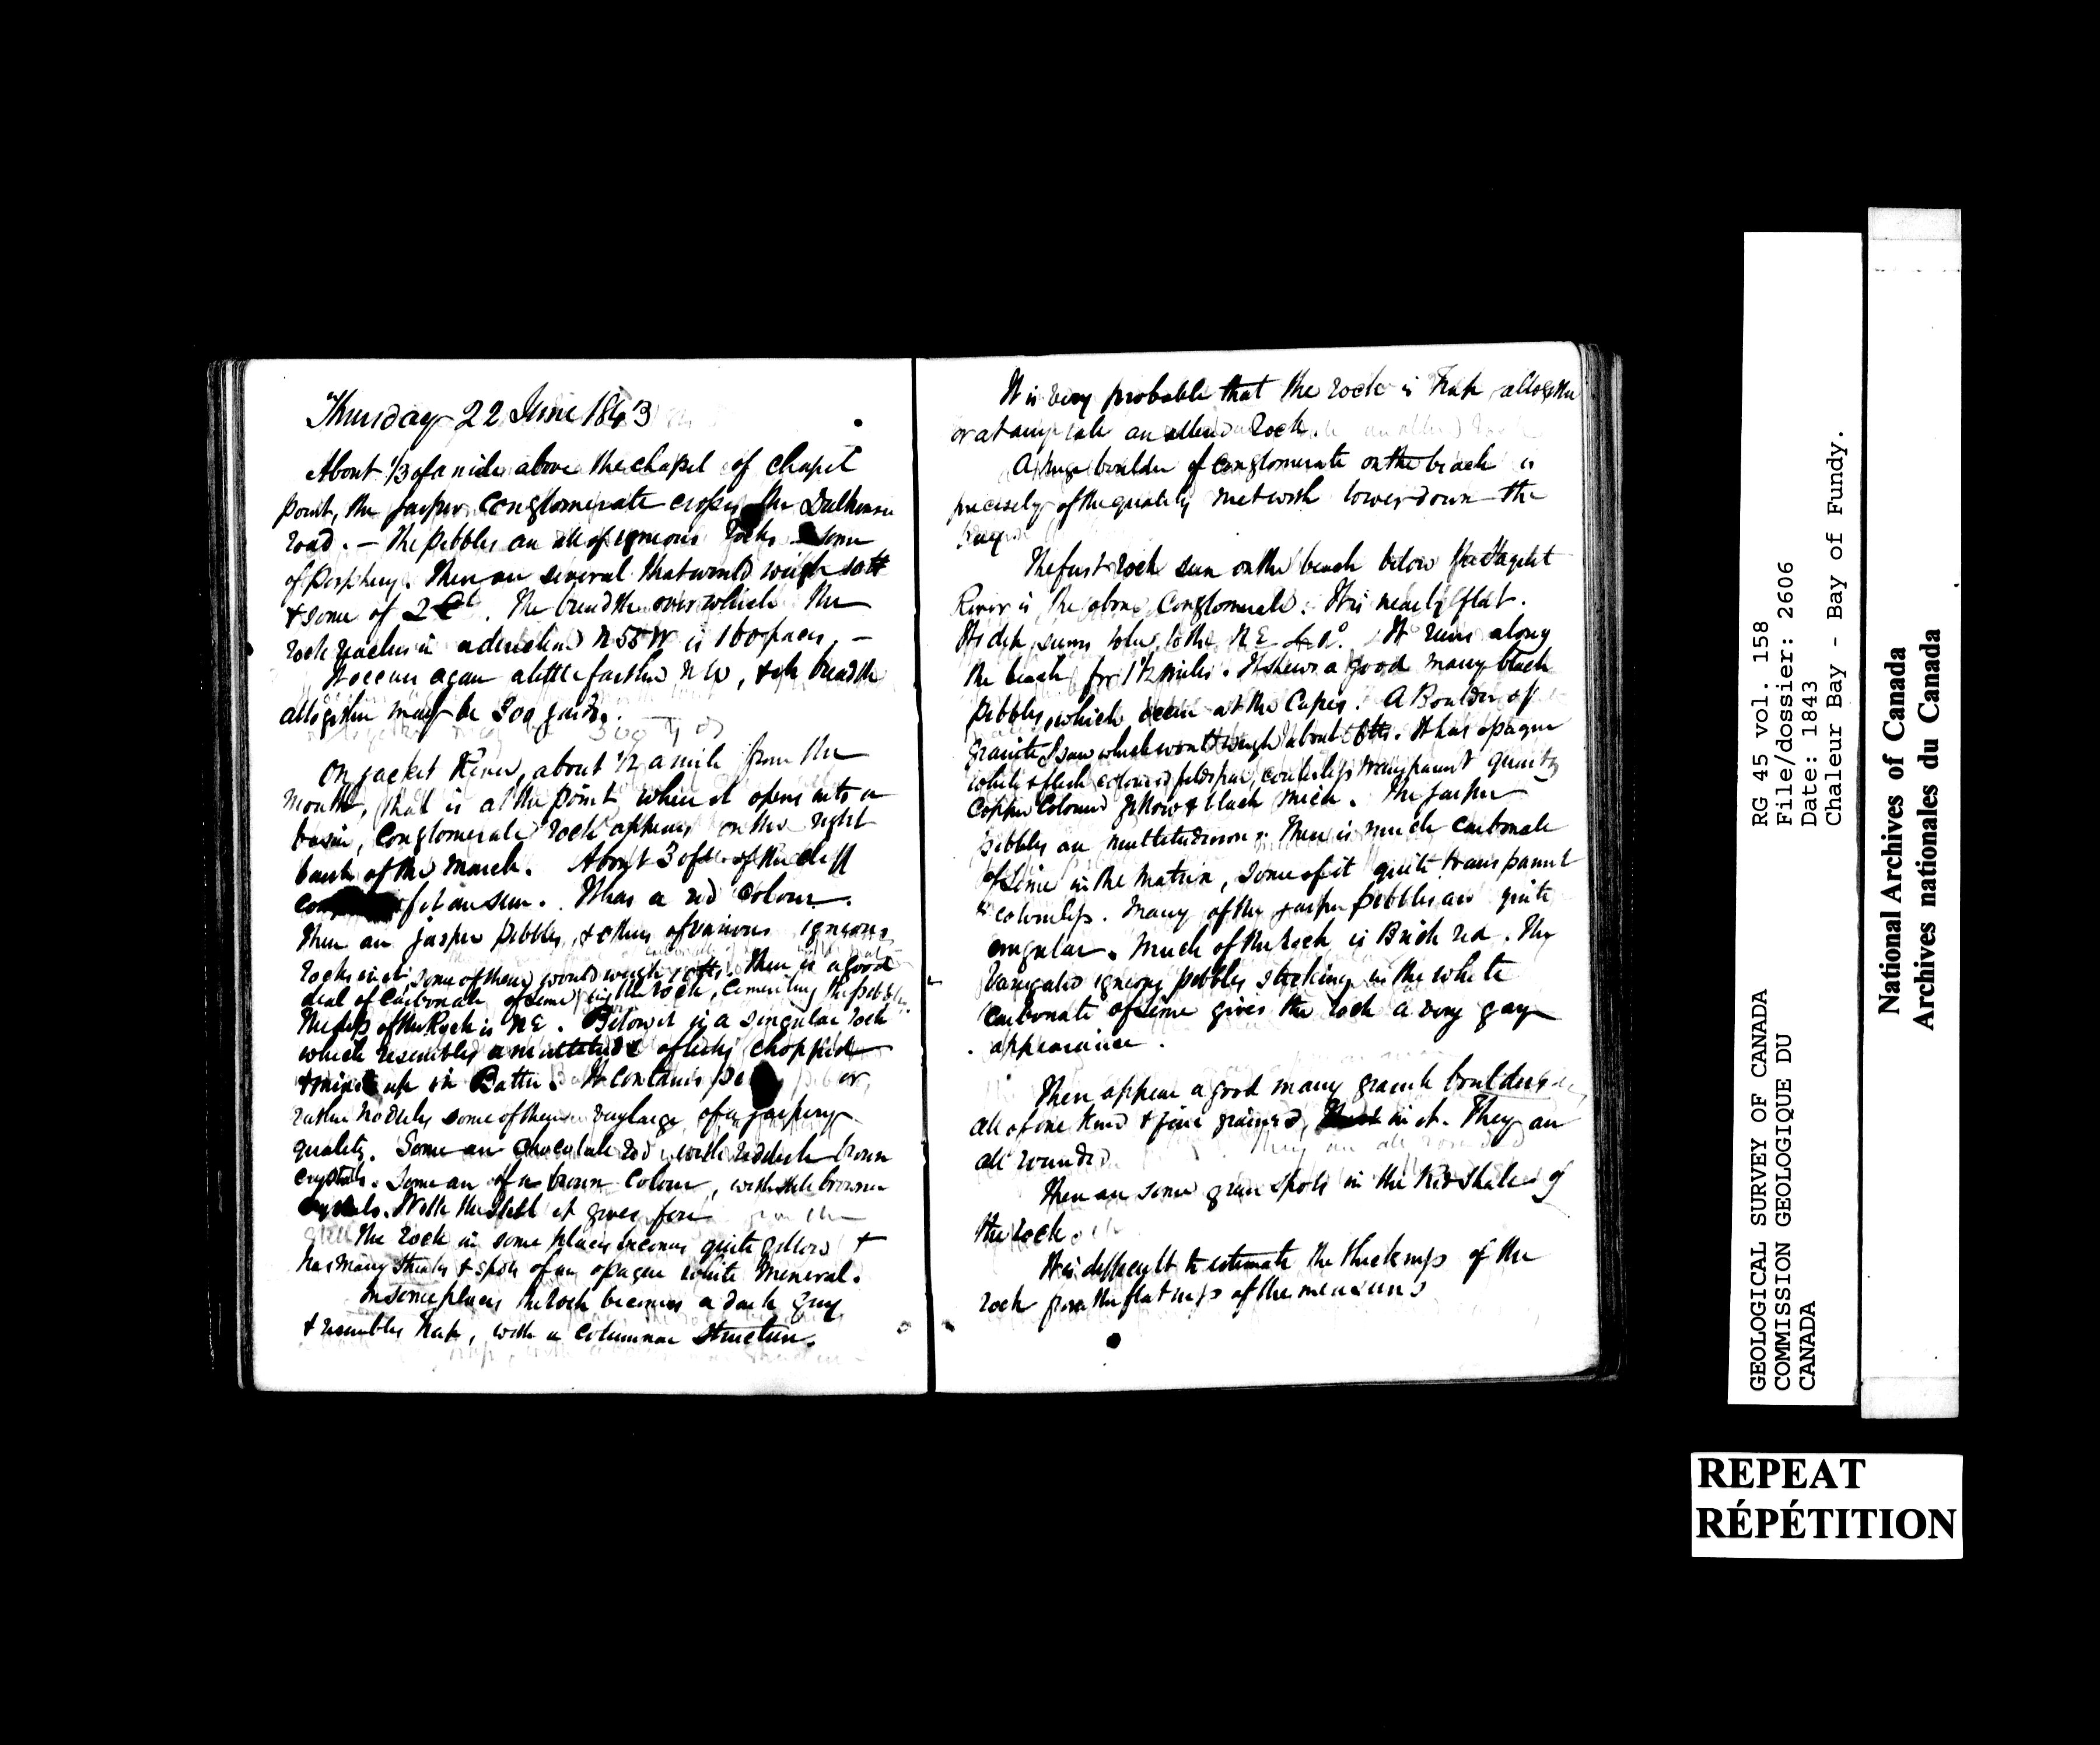 Thursday 22 June 1843
About 1/3 of a mile above the chapel of chapel
point, the jasper conglomerate crosses the Dalhousie
road. – The pebbles are all of igneous rocks some
of porphyry. There are several that would weigh
& some of 2 The breadth over which the
rock reaches in a direction N 55 W is 160 paces. –
It occurs again a little farther NW, & its breadth
altogether may be 300 yards.
On Jacket River, about 1/2 a mile from the
mouth, that is at the point where it opens into a
basin, conglomerate rock appears on the right
bank of the march. About 3 of the cliff
of it are seen. It has a red colour.
There are jasper pebbles, & others of various igneous
rocks in it; some of them would weigh There is a good
deal of carbonate of lime in the rock, cementing the pebbles.
The dip of the Rock is NE. Below it is a singular rock
which resembles a multitude of chopped
& mixed up in Batter. It contains or
rather nodules some of them very large, of a jaspery
quality. Some are chocolate red with reddish brown
crystals. Some are of a brown colour, with still browner
crystals. With the steel it gives fire
The rock in some places becomes quite yellow &
has many streaks & spots of an opaque white mineral.
In some places the rock becomes a dark grey
& resembles Trap, with a columnar structure.
It is very probable that the rock is Trap altogether
or at any rate an altered rock.
A huge boulder of conglomerate on the beach is
precisely of the quality met with lower down the
Bay
The first rock seen on the beach below
River is the above Conglomerate. It is nearly flat.
Its dip seems to be to the NE It runs along
the beach for 1 1/2 miles. It shews a good many black
pebbles, which occur at the Capes. A Boulder of
granite I saw which would weigh about It has opaque
white & flesh coloured feldspar, colourless transparent quartz
copper coloured yellow & black mica. The jasper
pebbles are multitudinous; There is much carbonate
of lime in the matrix, some of it quite transparent
& colourless. Many of the jasper pebbles are quite
angular. Much of the rock is Brick red. The
variegated igneous pebbles sticking in the white
carbonate of lime gives the rock a very gay
appearance.
There appear a good many granite boulders
all of one kind & fine grained, in it. They are
all rounded
There are some green spots in the Red shale of
the rock
It is difficult to estimate the thickness of the
rock from the flatness of the measures
GEOLOGICAL SURVEY OF CANADA
COMMISSION GEOLOGIQUE DU
CANADA
RG 45 vol. 158
File/dossier: 2606
Date: 1843
Chaleur Bay - Bay of Fundy.
National Archives of Canada
Archives nationales du Canada
REPEAT
RÉPÉTITION